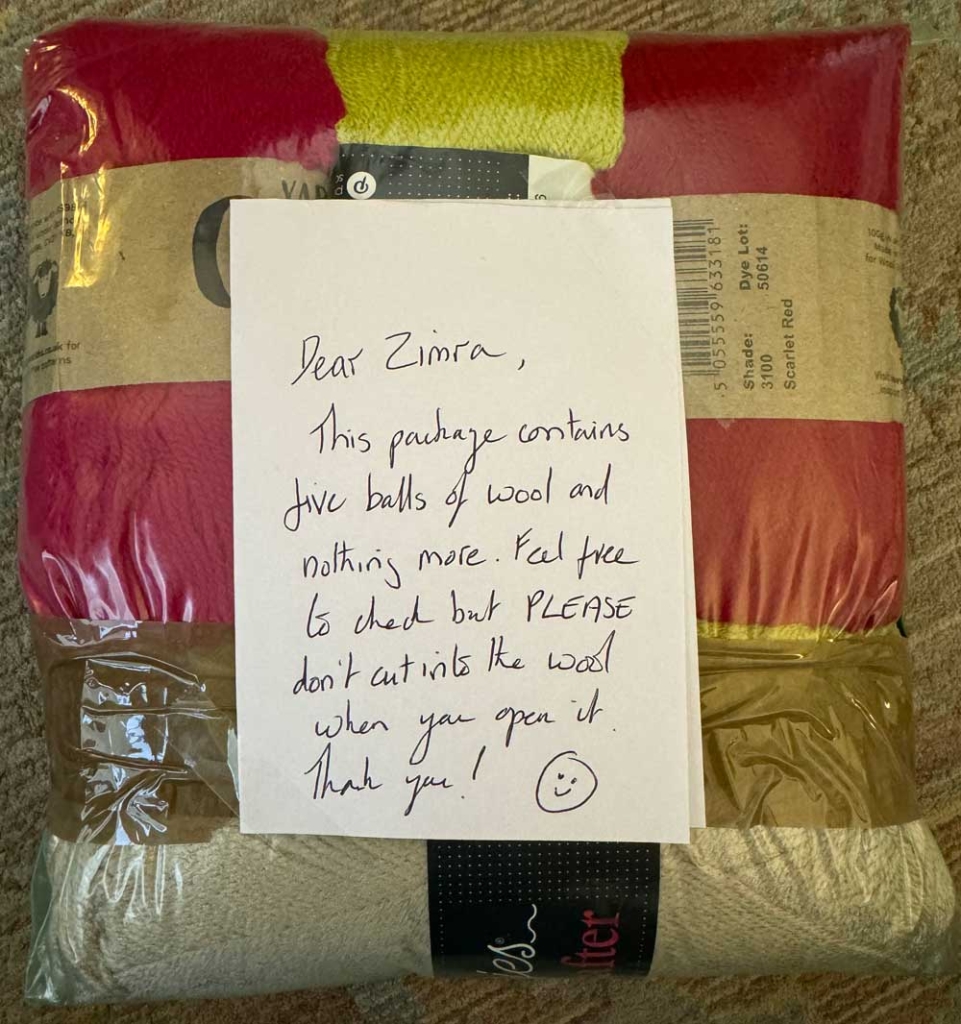 YAR
Dear Zimra,
This package contains
five balls of wool and
nothing more. Feel free
to check but PLEASE
don't cut into the wool
when you open it.
Thank you!
5 055559 633181
Shade:
3100
Dye Lot:
50614
Scarlet Red
for